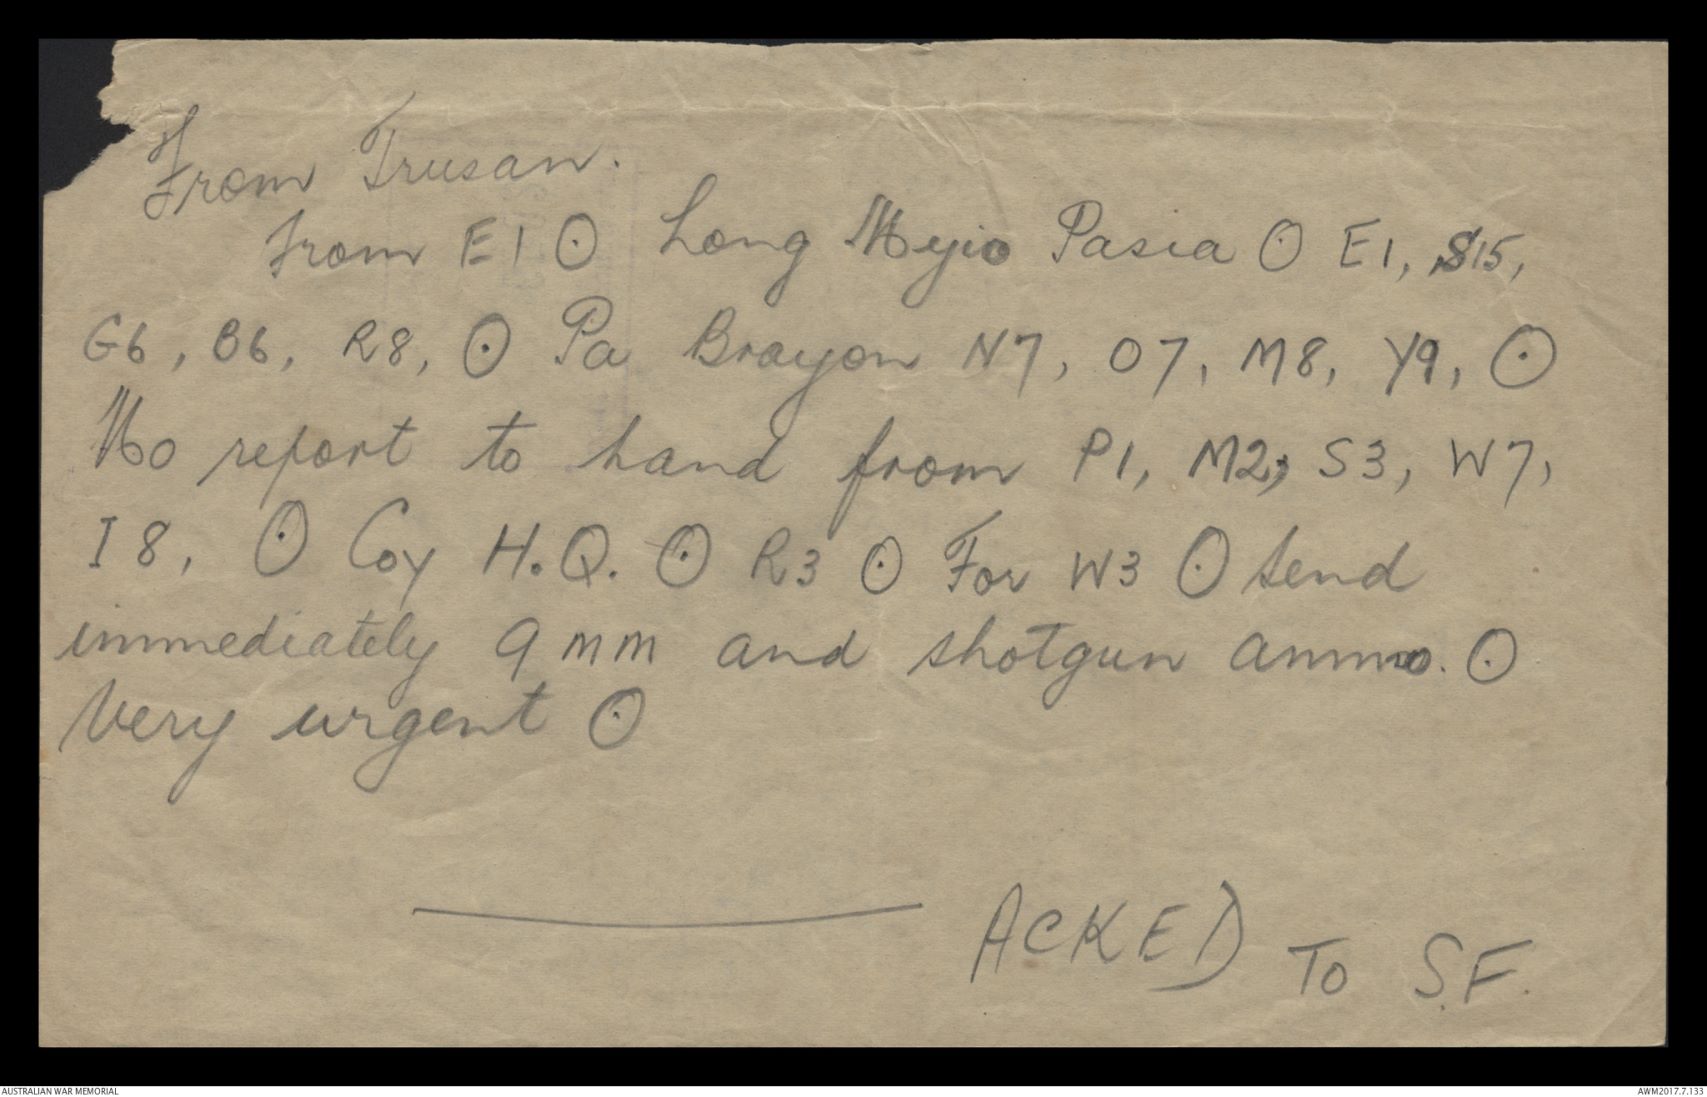 From Trusan.
From E1 ⊙ Long Mio Pasia ⊙ E1, S15,
G6, B6, R8, ⊙ Pa Brayon N7, O7, M8, Y9, ⊙
No report to hand from P1, M2, S3, W7,
I8, ⊙ Coy H.Q. ⊙ R3 ⊙ For W3 ⊙ Send
immediately 9 mm and shotgun ammo. ⊙
Very urgent ⊙
ACKED TO S.F.
AUSTRALIAN WAR MEMORIAL
AWM2017.7.133